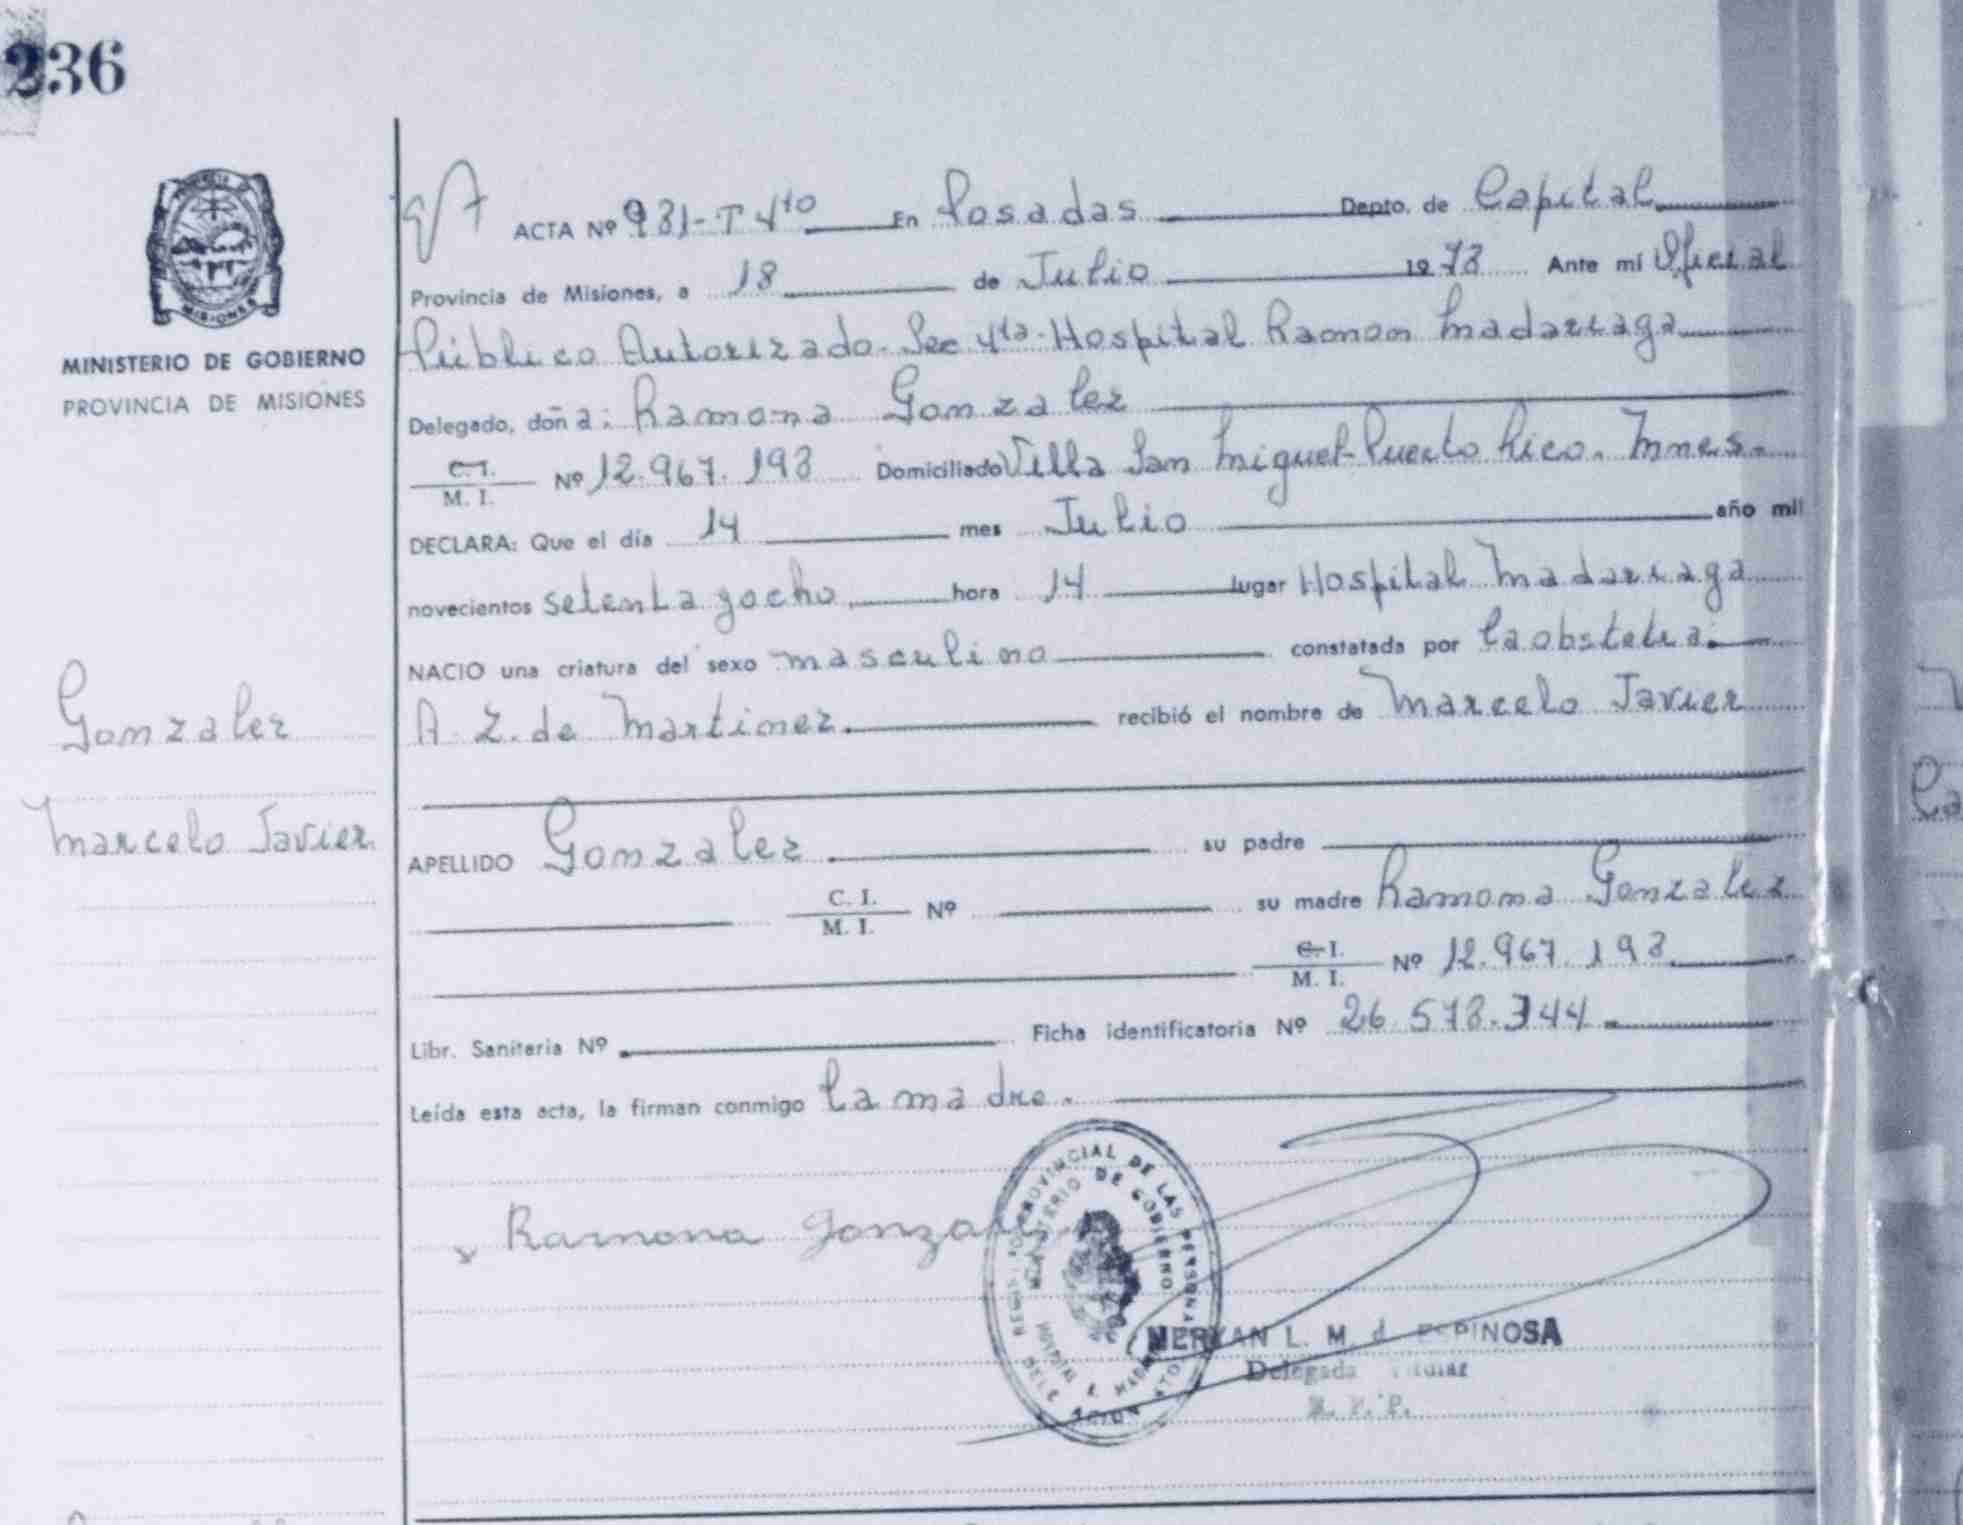 236
MISIONES
MINISTERIO DE GOBIERNO
PROVINCIA DE MISIONES
ACTA Nº 931-T 4to En Posadas Depto. de Capital
Provincia de Misiones, a 18 de Julio 1978 Ante mí Oficial
Público Autorizado-Sec 4ta-Hospital Ramon Madariaga
Delegado, doña: Ramona Gonzalez
C. I.
M. I. Nº 12.967.198 Domiciliado Villa San Miguel-Puerto Rico. Mnes.
DECLARA: Que el día 14 mes Julio año mil
novecientos setenta y ocho hora 14 lugar Hospital Madariaga
NACIO una criatura del sexo masculino constatada por la obstetra:
A. Z. de Martinez. recibió el nombre de Marcelo Javier
Gonzalez
Marcelo Javier
APELLIDO Gonzalez su padre
C. I.
M. I. Nº su madre Ramona Gonzalez
C. I.
M. I. Nº 12.967.198
Libr. Sanitaria Nº Ficha identificatoria Nº 26 578.344
Leída esta acta, la firman conmigo la madre.
Ramona
PROVINCIAL DE LAS PERSONAS
MINISTERIO DE GOBIERNO
L. M. d ESPINOSA
Delegada Titular